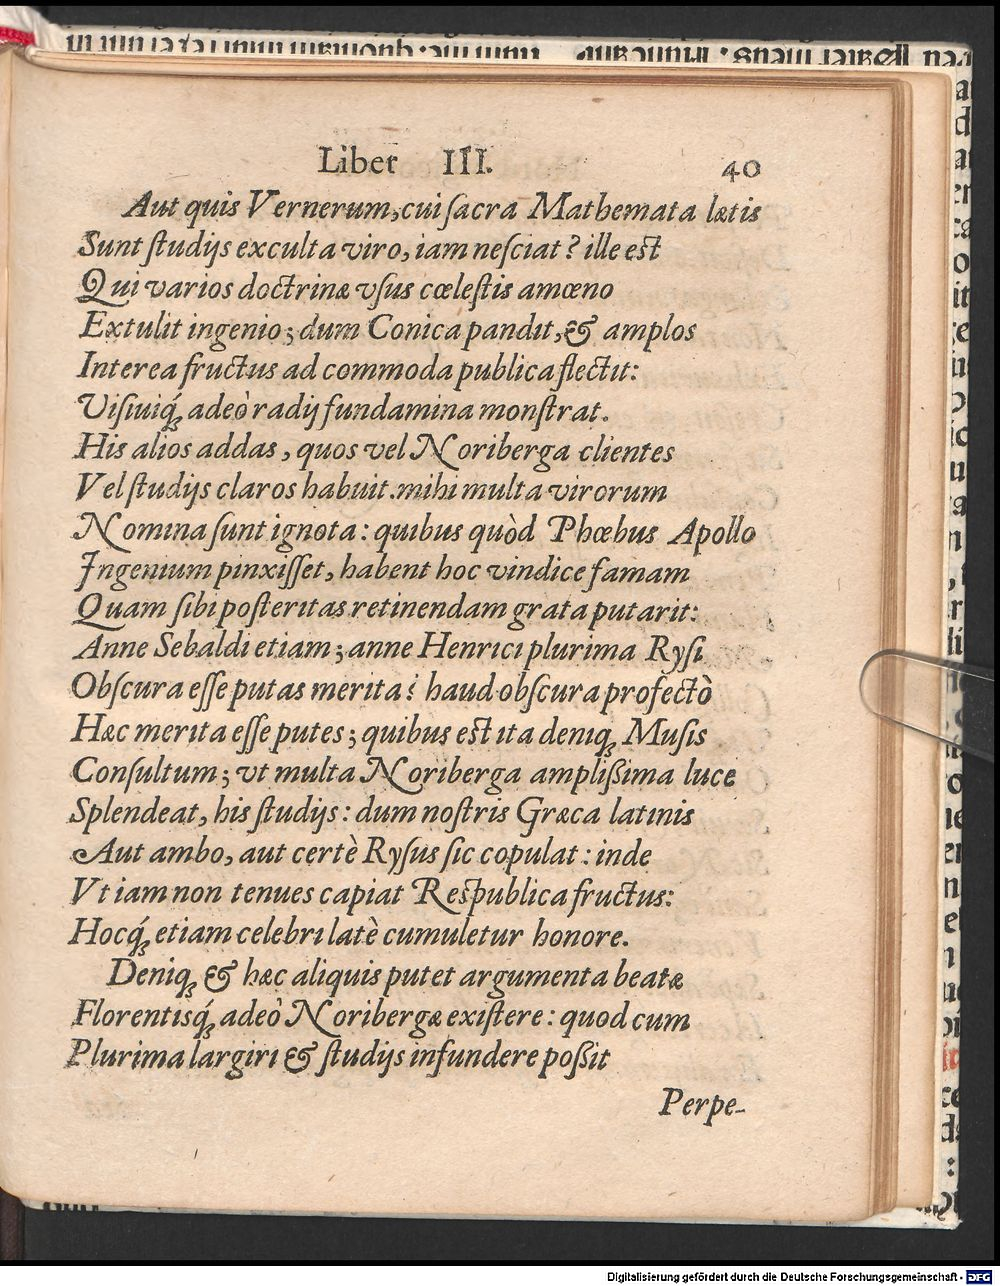 Liber III. 40
Aut quis Vernerum, cui ſacra Mathemata lætis
Sunt ſtudijs exculta viro, iam neſciat? ille est
Qui varios doctrinæ vſus cœleſtis amœno
Extulit ingenio; dum Conica pandit, & amplos
Interea fructus ad commoda publica flectit:
Viſiuiq́ꝫ adeò radij fundamina monſtrat.
His alios addas, quos vel Noriberga clientes
Vel ſtudijs claros habuit. mihi multa virorum
Nomina ſunt ignota: quibus quòd Phœbus Apollo
Ingenium pinxiſſet, habent hoc vindice famam
Quam ſibi poſteritas retinendam grata putarit:
Anne Sebaldi etiam; anne Henrici plurima Ryſi
Obſcura eſſe putas merita? haud obſcura profectò
Hæc merita eſſe putes; quibus est ita deniqꝫ Muſis
Conſultum; vt multa Noriberga ampliſsima luce
Splendeat, his ſtudijs: dum noſtris Græca latinis
Aut ambo, aut certè Ryſus ſic copulat: inde
Vt iam non tenues capiat Respublica fructus:
Hocq́ꝫ etiam celebri latè cumuletur honore.
Deniqꝫ & hæc aliquis putet argumenta beatæ
Florentisq́ꝫ adeò Noribergæ exiſtere: quod cum
Plurima largiri & ſtudijs infundere poſsit
Perpe-
Digitalisierung gefördert durch die Deutsche Forschungsgemeinschaft - DFG